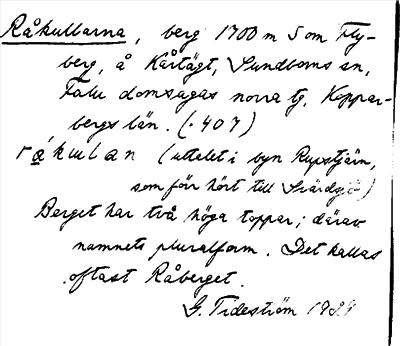 Råkullarna, berg 1700 m S om Fly-
berg, å Kårtägt, Sundborns sn,
Falu domsagas norra tg, Koppar-
bergs län. (.407)
råkulan (uttalet i byn Rupstjärn,
som förr hört till Svärdsjö)
Berget har två höga toppar; därav
namnets pluralform. Det kallas
oftast Råberget.
G. Tideström 1934